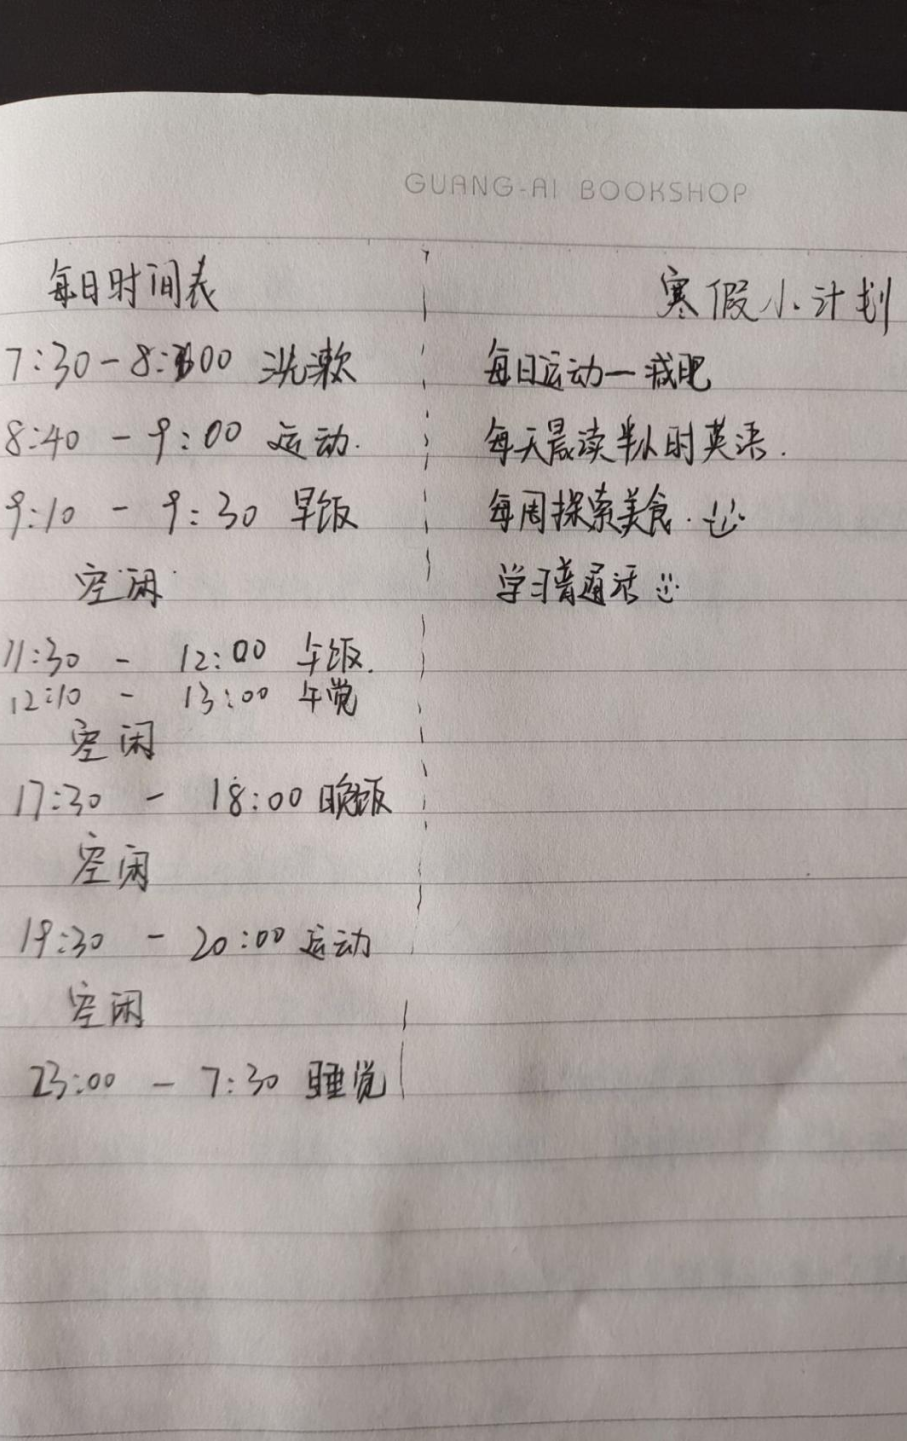 GUANG-AI BOOKSHOP
每日时间表
7:30-8:00 洗漱
8:40-9:00 运动.
9:10-9:30 早饭
空闲
11:30-12:00 午饭.
12:10-13:00 午觉
空闲
17:30-18:00 晚饭
空闲
19:30-20:00 运动
空闲
23:00-7:30 睡觉
寒假小计划
每日运动一减肥
每天晨读半小时英语.
每周探索美食.
学习普通话